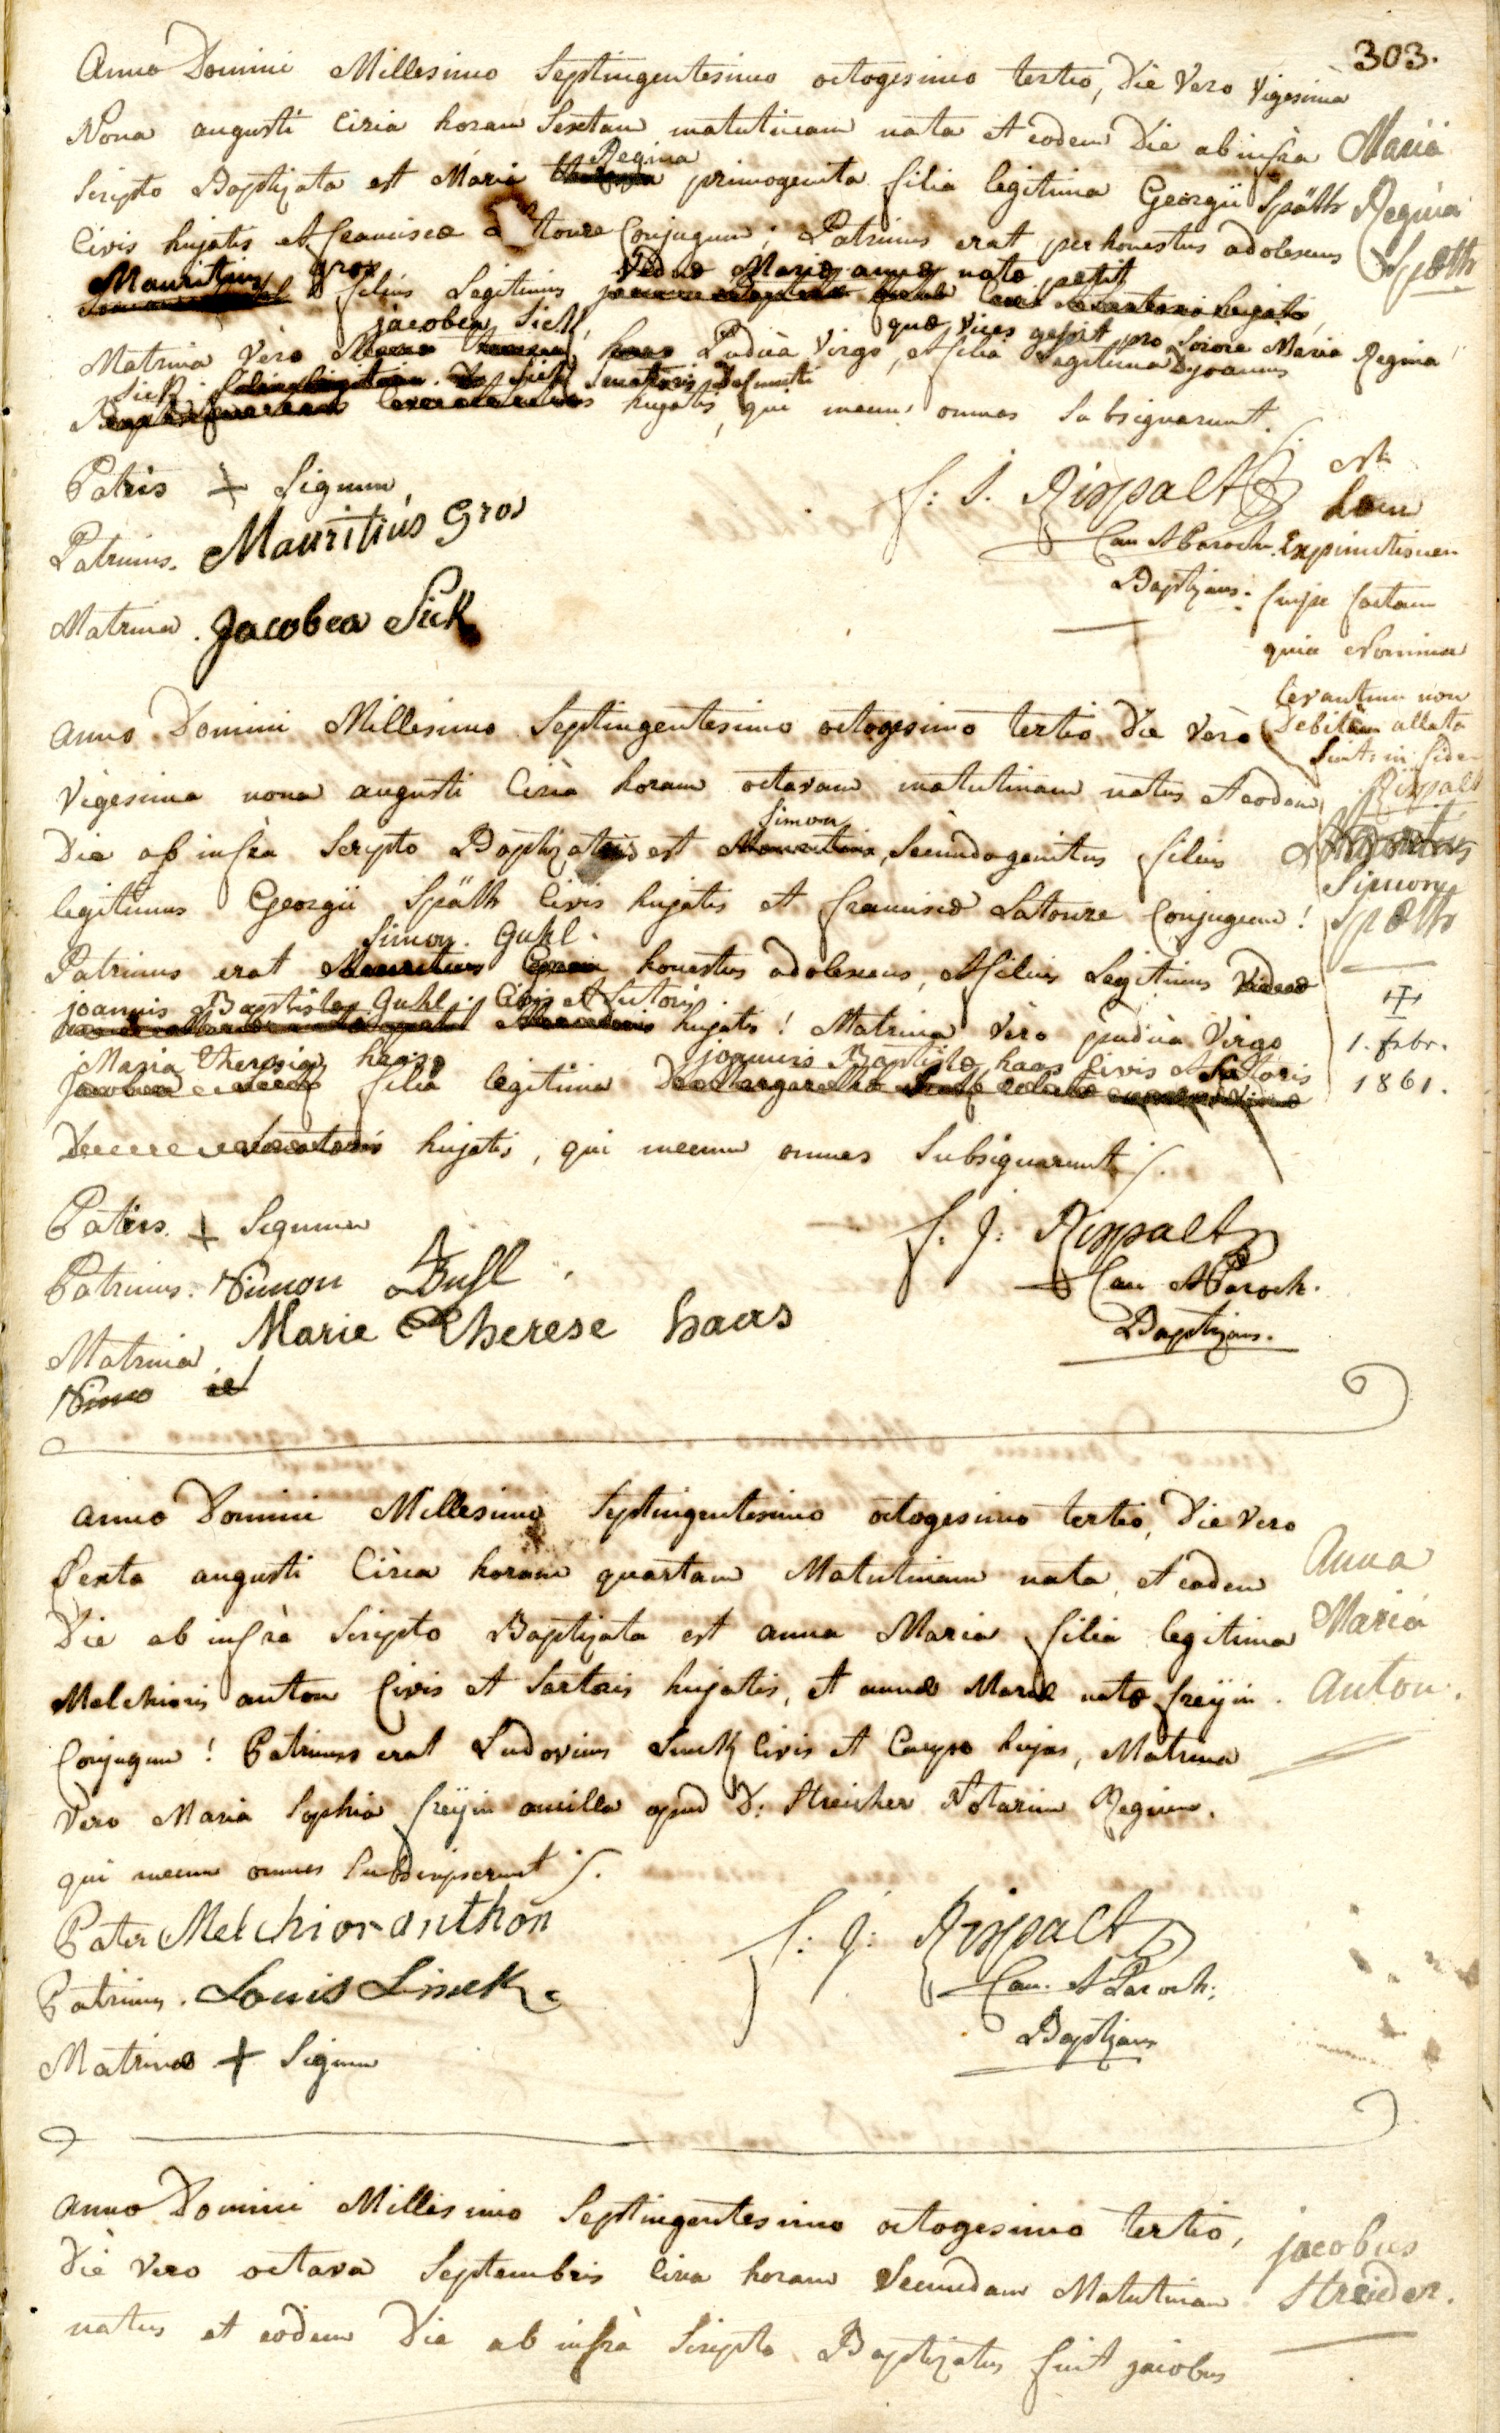 303.
Anno Domini Millesimo Septingentesimo octogesimo tertio, Die Vero Vigesima
Nona augusti Circa horam Sextam matutinam nata et eodem Die ab infra
Maria
Regina
Scripto Baptizata est Maria primogenita filia legitima Georgii Späth
Regina
Civis hujatis et franciscæ Latoure Conjugum; Patrinus erat perhonestus adolescens
Späth
Mauritius gros Viduæ Mariæ annæ natæ petit
filius Legitimus hujatis,
jacobea Sick, quæ vices gessit pro Sorore Maria Regina
Matrina Vero Pudica Virgo, et filia Legitima D. joannis
Sick Senatoris Defuncti
hujatis, qui mecum omnes Subsignarunt.
Patris + Signum
Patrinus. Mauritius Gros
Matrina. Jacobea Sick
f: J. Rispalt
Can et Paroch.
Baptizans.
est
hanc
Expunctionem
fuisse factam
quia Nomina
levantium non
Debite allata
Sint. in fidem
Rispalt
Anno Domini Millesimo Septingentesimo octogesimo tertio Die Vero
Vigesima nona augusti Circa horam octavam matutinam natus et eodem
Simon
Die ab infra Scripto Baptizatus est Secundogenitus filius
Simon
Späth
legitimus Georgii Späth Civis hujatis et franciscæ Latoure Conjugum!
Simon. Guhl.
Patrinus erat Mauritius honestus adolescens, et filius Legitimus Viduæ
joannis Baptistæ Guhl. Civis et Sutoris
hujatis! Matrina Vero pudica Virgo
+
1. febr.
1861.
Maria theresia haas joannis Baptistæ haas Civis et Sutoris
filia legitima
Senatoris hujatis, qui mecum omnes Subsignarunt
Patris. + Signum
Patrinus. Simon Guhl
Matrina Marie Therese haas
f. J: Rispalt
Can et Paroch.
Baptizans.
Anno Domini Millesimo Septingentesimo octogesimo tertio, Die Vero
Sexta augusti Circa horam quartam Matutinam nata, et eadem
Die ab infrà Scripto Baptizata est anna Maria filia legitima
Anna
Maria
Anton.
Melchioris anton Civis et Sartoris hujatis, et annæ Mariæ natæ freyin.
Conjugum! Patrinus erat Ludovicus Linck Civis et Caupo hujas, Matrina
Vero Maria Sophia freyin ancilla apud D: Streicher Notarium Regium.
qui mecum omnes Subscripserunt
Pater Melchior anthon
Patrinus. Louis Linck
Matrinæ + Signum
f: J: Rispalt
Can. et Paroch:
Baptizans
Anno Domini Millesimo Septingentesimo octogesimo tertio,
Die Vero octava Septembris Circa horam Secundam Matutinam
natus et eodem Die ab infrà Scripto Baptizatus fuit jacobus
jacobus
Streicher.